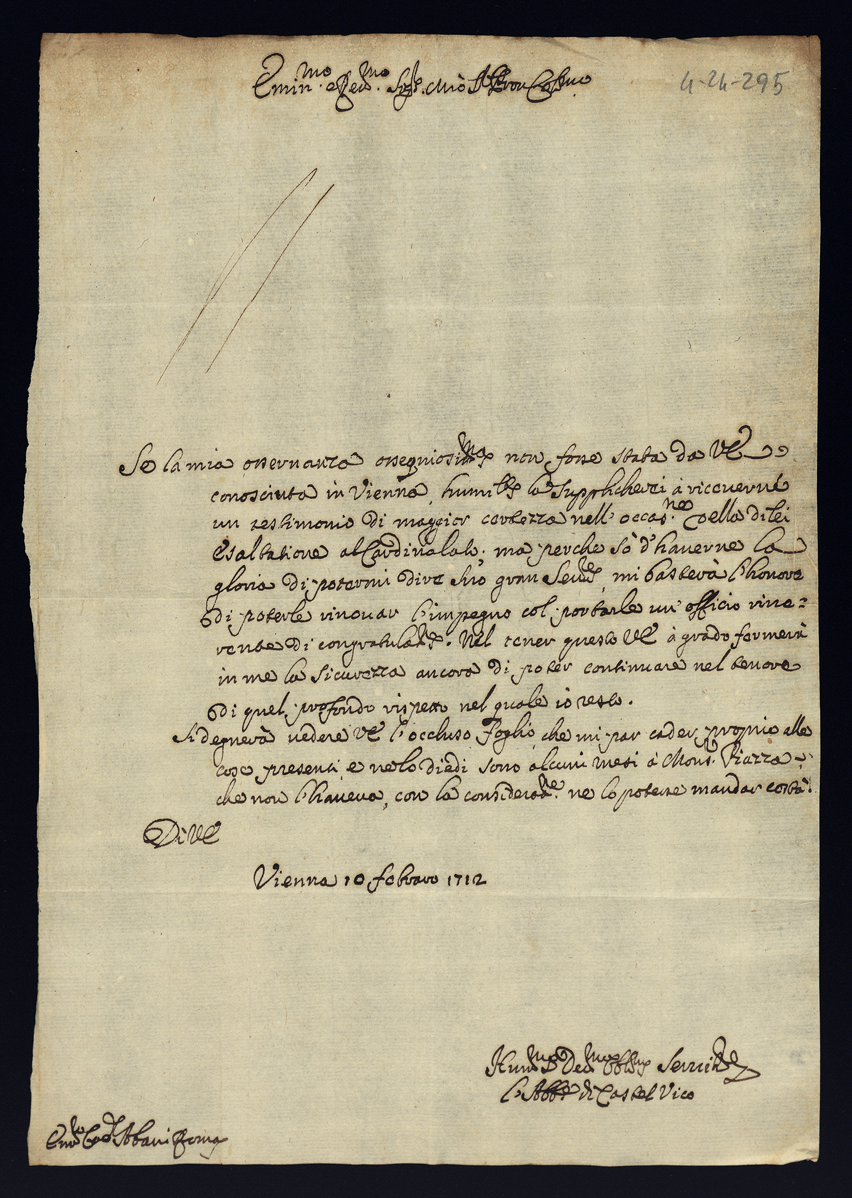 Emin.mo e Rev.mo Sig.r mio P'ron Col.mo
4-24-295
Se la mia osservanza ossequiosis.ma non fosse stata da VE
conosciuta in Vienna, humil.te la Supplicherei à riceverne
un testimonio di maggior certezza nell'occas.ne della di lei
Esaltatione al Cardinalato; ma perche sò d'haverne la
gloria di potermi dire suo gran Ser.re, mi basterà l'honore
di poterle rinovar l'impegno col portarle un'officio rive=
rente di congratulaz.ne. Nel tener questo VE à grado formerà
in me la sicurezza ancora di poter continuare nel tenore
di quel profondo rispetto nel quale io resto.
Si degnerà vedere VE l'occluso foglio, che mi par cader proprio alle
cose presenti, e ne lo diedi sono alcuni mesi à Mons.r Piazza
che non l'haveva, con la considera.ne ne lo potesse mandar costà.
Di VE
Vienna 10 febraro 1712
Hum.mo Dev.mo Obblig.mo Servit.re
l'Abb.e di Castel Vico
Em.mo Card. Albani Roma